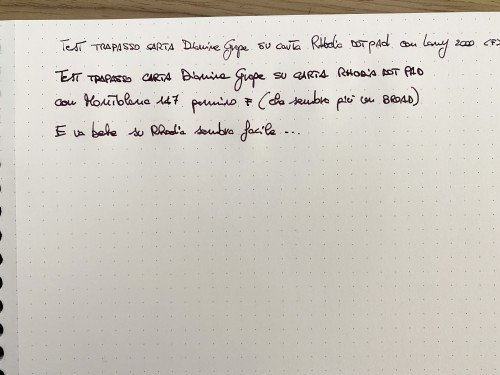 TEST TRAPASSO CARTA Diamine Grape SU carta Rhodia DOTpad con Lamy 2000 (F)
TEST TRAPASSO CARTA Diamine Grape SU CARTA RHODIA DOT PAD
con Montblanc 147 pennino F (che sembra più un BROAD)
E va bene su Rhodia sembra facile ...